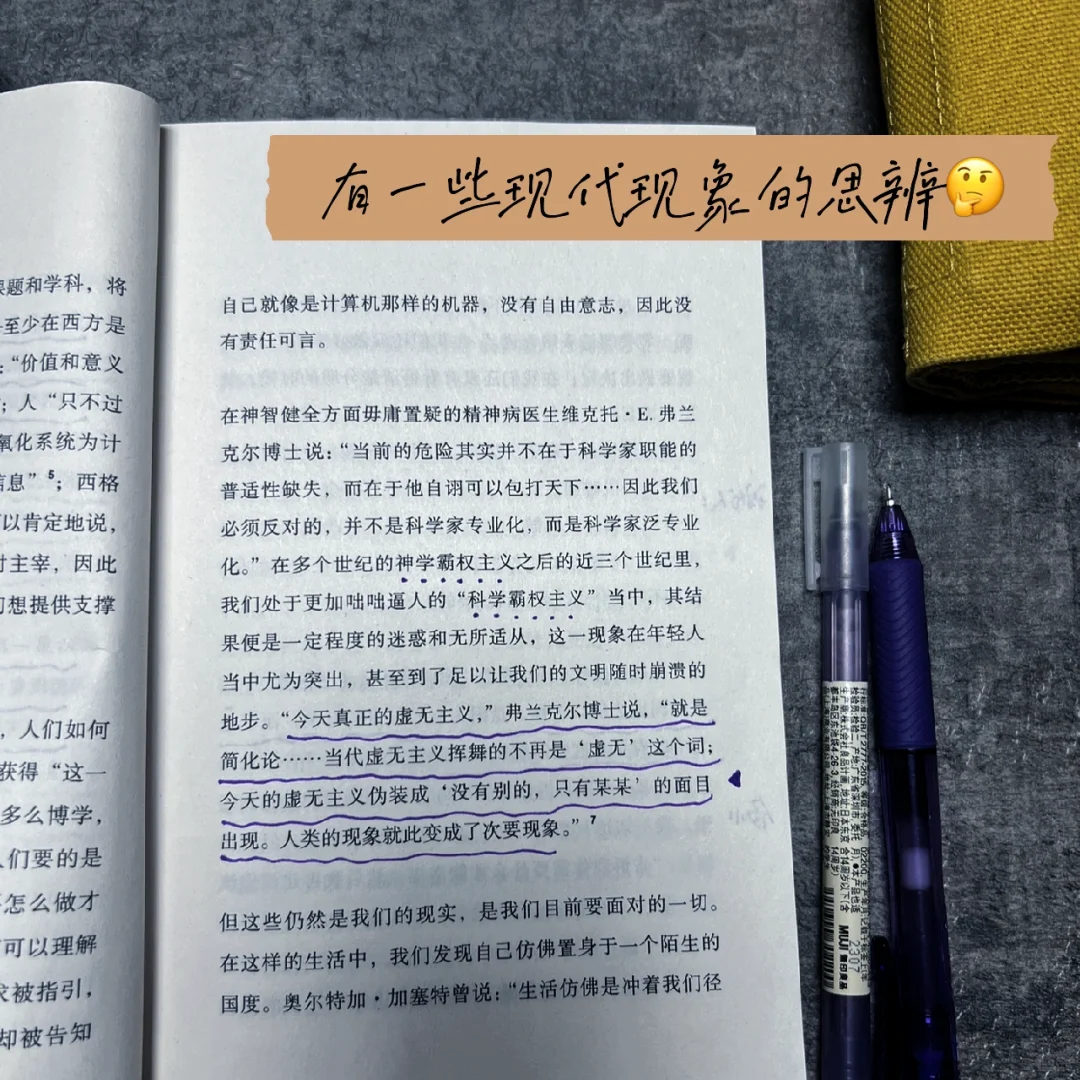 有一些现代现象的思辨🤔
题和学科，将
至少在西方是
：“价值和意义
；人“只不过
氧化系统为计
信息”⁵；西格
以肯定地说，
主宰，因此
想提供支撑
，人们如何
获得“这一
多么博学，
人们要的是
怎么做才
可以理解
求被指引，
却被告知
自己就像是计算机那样的机器，没有自由意志，因此没
有责任可言。
在神智健全方面毋庸置疑的精神病医生维克托·E.弗兰
克尔博士说：“当前的危险其实并不在于科学家职能的
普适性缺失，而在于他自诩可以包打天下……因此我们
必须反对的，并不是科学家专业化，而是科学家泛专业
化。”在多个世纪的神学霸权主义之后的近三个世纪里，
我们处于更加咄咄逼人的“科学霸权主义”当中，其结
果便是一定程度的迷惑和无所适从，这一现象在年轻人
当中尤为突出，甚至到了足以让我们的文明随时崩溃的
地步。“今天真正的虚无主义，”弗兰克尔博士说，“就是
简化论……当代虚无主义挥舞的不再是‘虚无’这个词；
今天的虚无主义伪装成‘没有别的，只有某某’的面目
出现。人类的现象就此变成了次要现象。”⁷
但这些仍然是我们的现实，是我们目前要面对的一切。
在这样的生活中，我们发现自己仿佛置身于一个陌生的
国度。奥尔特加·加塞特曾说：“生活仿佛是冲着我们径
2307
MUJI 無印良品